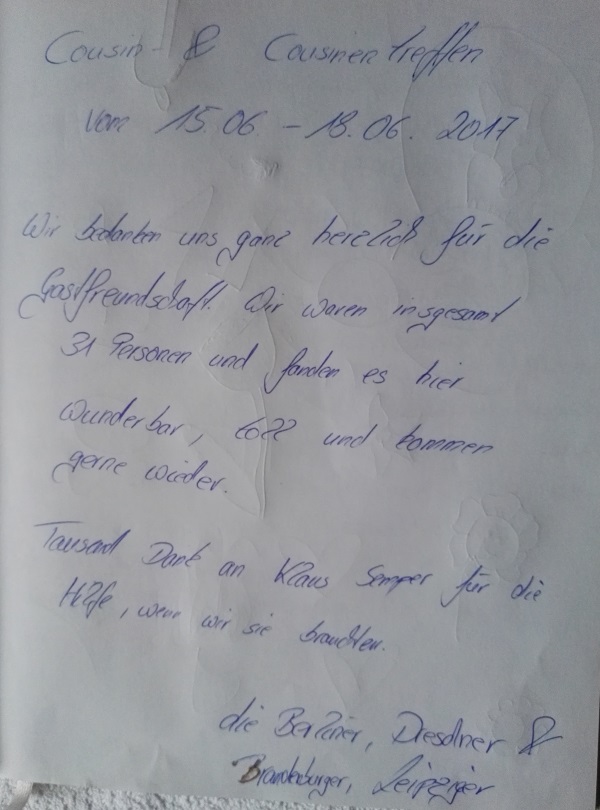 Cousin- & Cousinentreffen
vom 15.06 - 18.06. 2017
Wir bedanken uns ganz herzlich für die
Gastfreundschaft. Wir waren insgesamt
31 Personen und fanden es hier
wunderbar, toll und kommen
gerne wieder.
Tausend Dank an Klaus Semper für die
Hilfe, wenn wir sie brauchten.
die Berliner, Dresdner &
Brandenburger, Leipziger